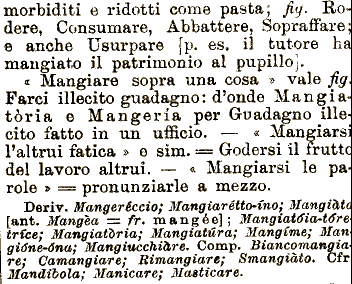 morbiditi e ridotti come pasta; fig. Ro-
dere, Consumare, Abbattere, Sopraffare;
e anche Usurpare [p. es. il tutore ha
mangiato il patrimonio al pupillo].
« Mangiare sopra una cosa » vale fig.
Farci illecito guadagno: d'onde Mangia-
tòria e Mangería per Guadagno ille-
cito fatto in un ufficio. — « Mangiarsi
l'altrui fatica » e sim. = Godersi il frutto
del lavoro altrui. — « Mangiarsi le pa-
role » = pronunziarle a mezzo.
Deriv. Mangeréccio; Mangiarétto-íno; Mangiàta
[ant. Mangèa = fr. mangée]; Mangiatóia-tóre-
tríce; Mangiatòria; Mangiatúra; Mangíme; Man-
gióne-óna; Mangiucchiàre. Comp. Biancomangia-
re; Camangiare; Rimangiare; Smangiàto. Cfr
Mandíbola; Manicare; Masticare.